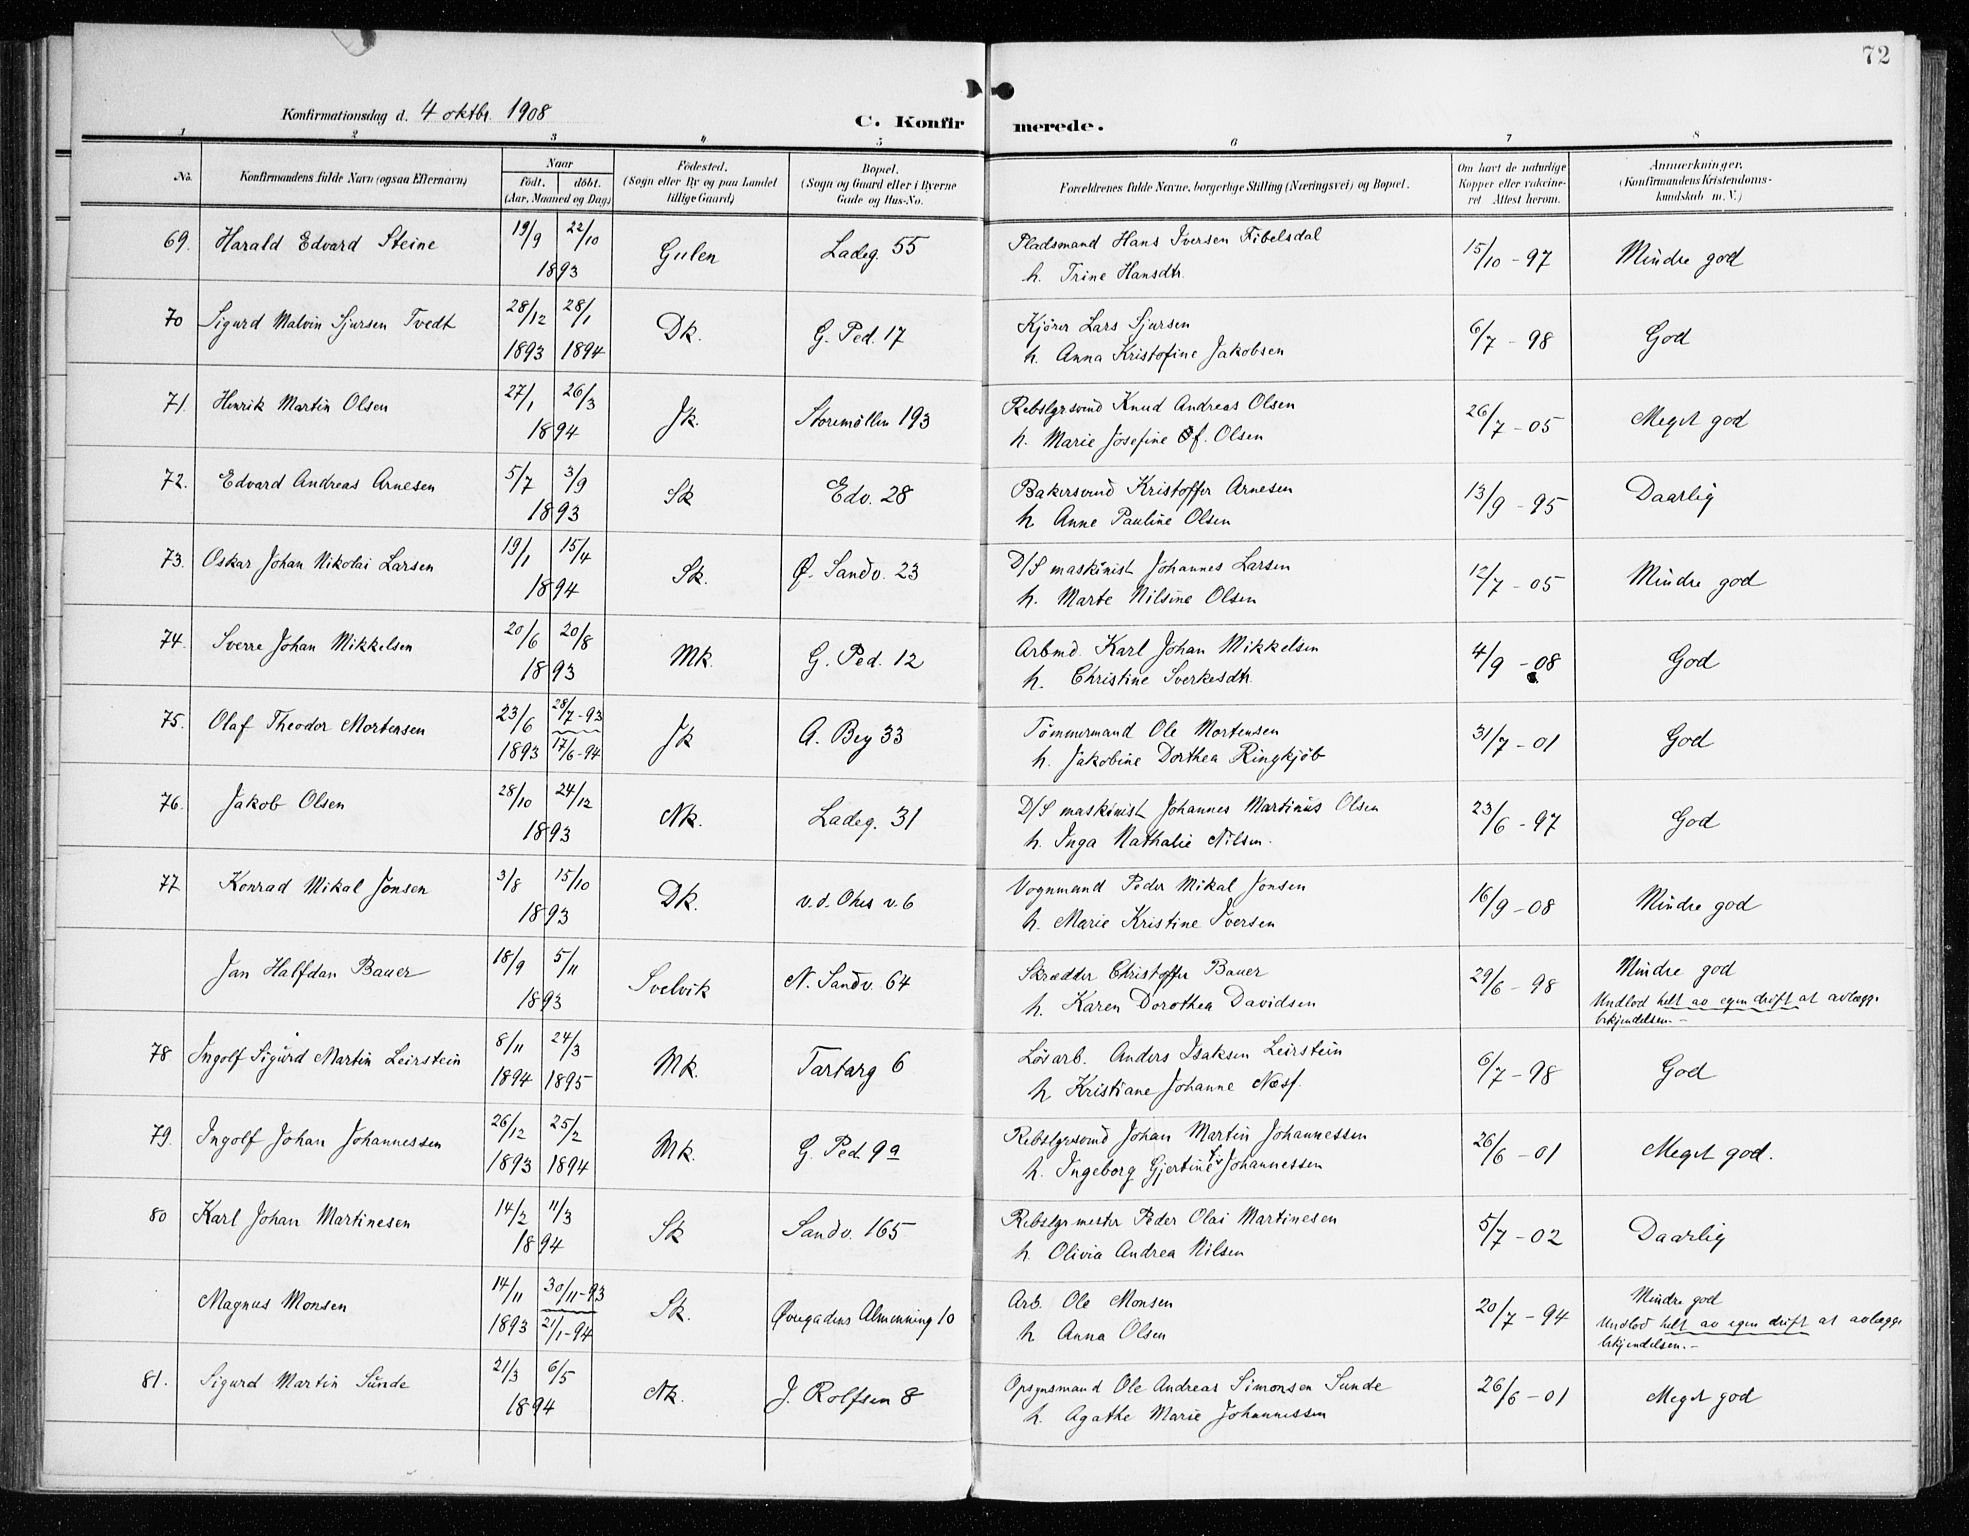 72
Konfirmationsdag d. 4 oktbr. 1908
C. Konfirmerede.
1 2 3 4 5 6 7 8
No. Konfirmandens fulde Navn (ogsaa Efternavn) Naar födt. döbt. (Aar, Maaned og Dag) Födested. (Sogn eller By og paa Landet tillige Gaard) Bopæl. (Sogn og Gaard eller i Byerne Gade og Hus-No. Forældrenes fulde Navne, borgerlige Stilling (Næringsvei) og Bopæl. Om havt de naturlige Kopper eller vakcineret Attest herom. Anmærkninger. (Konfirmandens Kristendomskundskab m. V.)
69. Harald Edvard Steine 19/9 22/10 1893 Gulen Ladeg. 55 Pladsmand Hans Iversen Fibelsdal 15/10 - 97 Mindre god
h. Trine Hansdtr.
70 Sigurd Malvin Sjursen Tvedt 28/12 1893 28/1 1894 Dk. G. Ped. 17 Kjörer Lars Sjursen 6/7 - 98 God
h. Anna Kristofine Jakobsen
71. Henrik Martin Olsen 27/1 26/3 1894 Jk. Storemöllen 193 Rebslgrsvend Knud Andreas Olsen 26/7 - 05 Meget god
h. Marie Josefine f. Olsen
72. Edvard Andreas Arnesen 5/7 3/9 1893 Sk Edv. 28 Bakersvend Kristoffer Arnesen 13/9 - 95 Daarlig
h Anne Pauline Olsen
73. Oskar Johan Nikolai Larsen 19/1 15/4 1894 Sk. Ø. Sandv. 23 D/S maskinist Johannes Larsen 12/7 - 05 Mindre god
h. Marte Nilsine Olsen
74. Sverre Johan Mikkelsen 20/6 20/8 1893 Mk. G. Ped. 12 Arbmd. Karl Johan Mikkelsen 4/9 - 08 God
h. Christine Sverkesdtr.
75. Olaf Theodor Mortensen 23/6 1893 28/7-93 17/6-94 Jk A. Bey 33 Tömmermand Ole Mortensen 31/7 - 01 God
h. Jakobine Dorthea Ringkjöb
76. Jakob Olsen 28/10 24/12 1893 Nk. Ladeg. 31 D/S maskinist Johannes Martinus Olsen 23/6 - 97 God
h. Inga Nathalie Nilsen.
77 Konrad Mikal Jonsen 3/8 15/10 1893 Dk. v. 6 Vognmand Peder Mikal Jonsen 16/9 - 08 Mindre god
h. Marie Kristine Iversen
Jan Halfdan Bauer 18/9 5/11 1893 Svelvik N. Sandv. 64 Skrædder Christoffer Bauer 29/6 - 98 Mindre god
h. Karen Dorothea Davidsen Undlod helt av egen drift at avlægge bekjendelsen.-
78 Ingolf Sigurd Martin Leirstein 8/11 1894 24/3 1895 Mk. Tartarg 6 Lösarb. Anders Isaksen Leirstein 6/7 - 98 God
h Kristiane Johanne Næsf.
79. Ingolf Johan Johannessen 26/12 1893 25/2 1894 Mk. G. Ped. 9a Rebslgrsvend Johan Martin Johannessen 26/6 - 01 Meget god.
h. Ingeborg Gjertine Johannessen
80 Karl Johan Martinesen 14/2 11/3 1894 Sk Sandv. 165 Rebslgrmester Peder Olai Martinesen 5/7 - 02 Daarlig
h. Olivia Andrea Nilsen
Magnus Monsen 14/11 1893 30/11-93 21/1-94 Sk. Øvregadens Almenning 10 Arb. Ole Monsen 20/7 - 94 Mindre god
h Anna Olsen Undlod helt av egen drift at avlægge bekjendelsen.-
81. Sigurd Martin Sunde 21/3 6/5 1894 Nk. J. Rolfsen 8 Opsynsmand Ole Andreas Simonsen Sunde 26/6 - 01 Meget god
h. Agathe Marie Johannessen